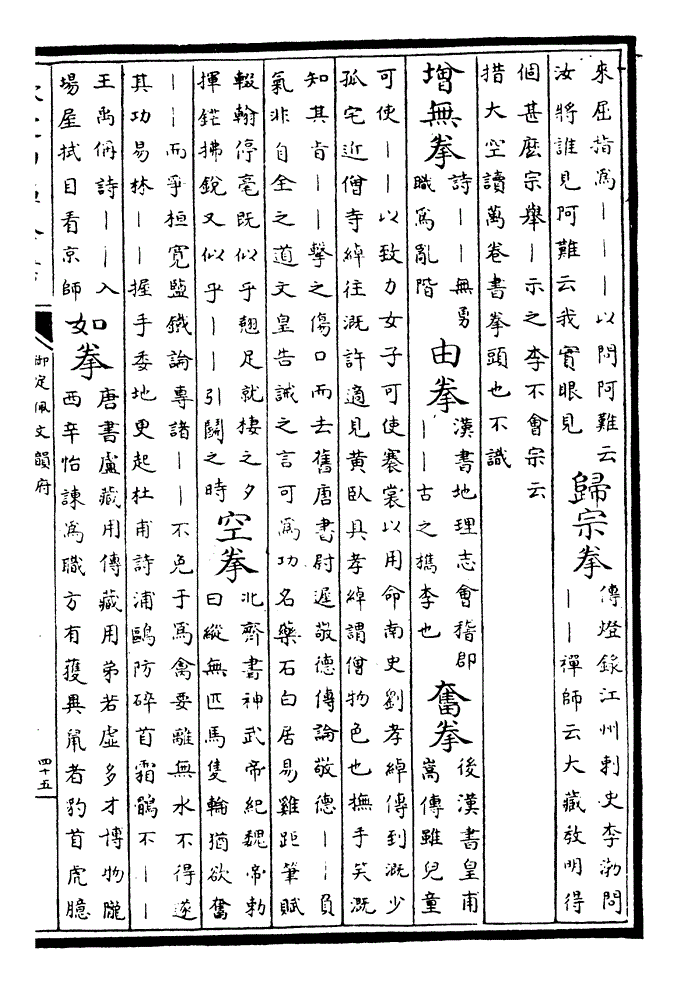 來屈指為｜｜｜以問阿難云
汝將誰見阿難云我實眼見
歸宗拳
傳燈錄江州刺史李渤問
｜｜禪師云大藏教明得
個甚麽宗舉｜示之李不會宗云
措大空讀萬卷書拳頭也不識
增無拳
詩｜｜無勇
職為亂階
由拳
漢書地理志會稽郡
｜｜古之檇李也
奮拳
後漢書皇甫
嵩傳雖兒童
可使｜｜以致力女子可使褰裳以用命南史劉孝綽傳到溉少
孤宅近僧寺綽往溉許適見黃臥具孝綽謂僧物色也撫手笑溉
知其旨｜｜擊之傷口而去舊唐書尉遲敬德傳論敬德｜｜負
氣非自全之道文皇告誡之言可為功名藥石白居易雞距筆賦
輟翰停毫既似乎翹足就棲之夕
揮鋩拂銳又似乎｜｜引鬬之時
空拳
北齊書神武帝紀魏帝勅
曰縱無匹馬隻輪猶欲奮
｜｜而爭桓寬鹽鐵論專諸｜｜不免于為禽要離無水不得遂
其功易林｜｜握手委地更起杜甫詩浦鷗防碎首霜鶻不｜｜
王禹偁詩｜｜入
場屋拭目看京師
如拳
唐書盧藏用傳藏用弟若虛多才博物隴
西辛怡諫為職方有獲異鼠者豹首虎臆
御定佩文韻府
四十五